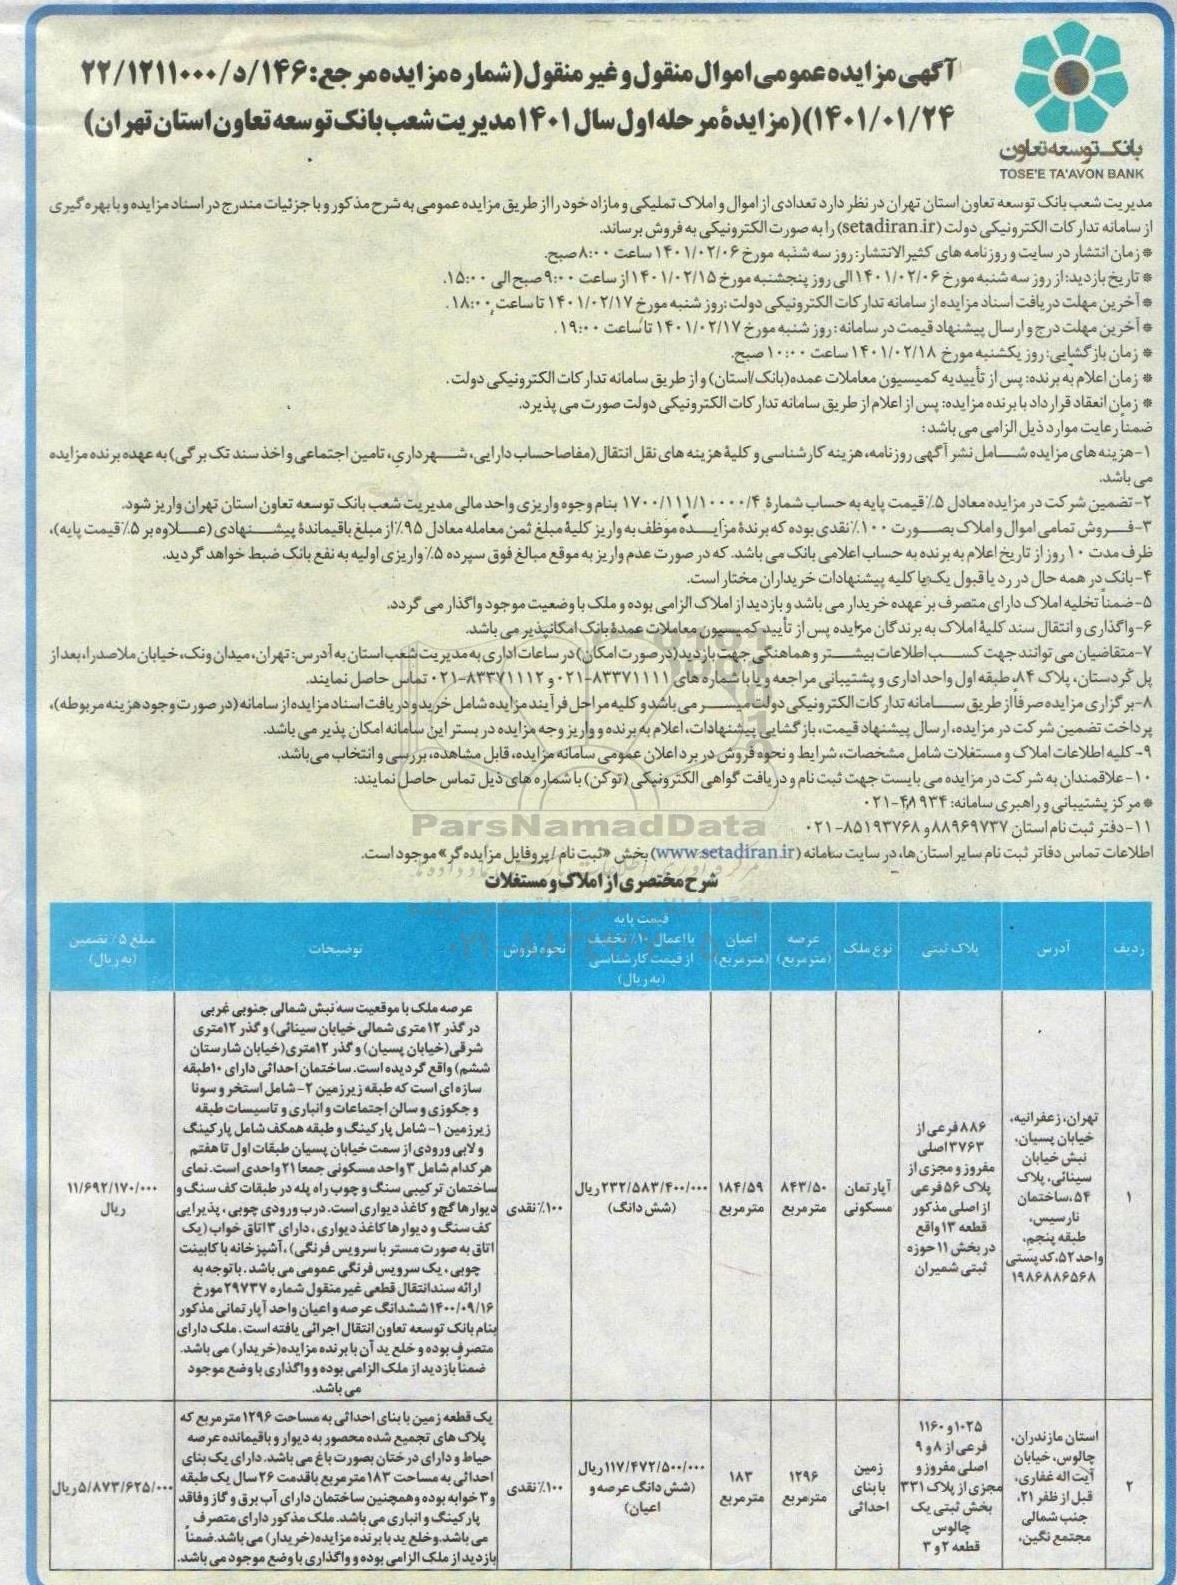 آگهی مزایده عمومی اموال منقول و غیر منقول (شماره مزایده مرجع: ۱۴۶/د/۲۲/۱۲۱۱۰۰۰
۱۴۰۱/۰۱/۲۴)(مزایدهٔ مرحله اول سال ۱۴۰۱ مدیریت شعب بانک توسعه تعاون استان تهران)
بانک توسعه تعاون
TOSE'E TA'AVON BANK
مدیریت شعب بانک توسعه تعاون استان تهران در نظر دارد تعدادی از اموال و املاک تملیکی و مازاد خود را از طریق مزایده عمومی به شرح مذکور و با جزئیات مندرج در اسناد مزایده و با بهره گیری
از سامانه تدارکات الکترونیکی دولت (setadiran.ir) را به صورت الکترونیکی به فروش برساند.
* زمان انتشار در سایت و روزنامه های کثیرالانتشار: روز سه شنبه مورخ ۱۴۰۱/۰۲/۰۶ ساعت ۸:۰۰ صبح.
* تاریخ بازدید: از روز سه شنبه مورخ ۱۴۰۱/۰۲/۰۶ الی روز پنجشنبه مورخ ۱۴۰۱/۰۲/۱۵ از ساعت ۹:۰۰ صبح الی ۱۵:۰۰.
* آخرین مهلت دریافت اسناد مزایده از سامانه تدارکات الکترونیکی دولت :روز شنبه مورخ ۱۴۰۱/۰۲/۱۷ تا ساعت ۱۸:۰۰ .
* آخرین مهلت درج و ارسال پیشنهاد قیمت در سامانه : روز شنبه مورخ ۱۴۰۱/۰۲/۱۷ تا ساعت ۱۹:۰۰ .
* زمان بازگشایی: روز یکشنبه مورخ ۱۴۰۱/۰۲/۱۸ ساعت ۱۰:۰۰ صبح.
* زمان اعلام به برنده: پس از تأییدیه کمیسیون معاملات عمده(بانک/استان) و از طریق سامانه تدارکات الکترونیکی دولت .
* زمان انعقاد قرارداد با برنده مزایده: پس از اعلام از طریق سامانه تدارکات الکترونیکی دولت صورت می پذیرد.
ضمناً رعایت موارد ذیل الزامی می باشد :
۱-هزینه های مزایده شامل نشر آگهی روزنامه، هزینه کارشناسی و کلیهٔ هزینه های نقل انتقال(مفاصاحساب دارایی، شهرداری، تامین اجتماعی و اخذ سند تک برگی) به عهده برنده مزایده
می باشد.
۲-تضمین شرکت در مزایده معادل ۵٪ قیمت پایه به حساب شمارهٔ ۱۷۰۰/۱۱۱/۱۰۰۰۰/۴ بنام وجوه واریزی واحد مالی مدیریت شعب بانک توسعه تعاون استان تهران واریز شود.
۳-فروش تمامی اموال و املاک بصورت ۱۰۰٪ نقدی بوده که برندهٔ مزایده موظف به واریز کلیهٔ مبلغ ثمن معامله معادل ۹۵٪ از مبلغ باقیماندهٔ پیشنهادی (علاوه بر ۵٪ قیمت پایه)،
ظرف مدت ۱۰ روز از تاریخ اعلام به برنده به حساب اعلامی بانک می باشد. که در صورت عدم واریز به موقع مبالغ فوق سپرده ۵٪ واریزی اولیه به نفع بانک ضبط خواهد گردید.
۴-بانک در همه حال در رد یا قبول یک یا کلیه پیشنهادات خریداران مختار است.
۵-ضمناً تخلیه املاک دارای متصرف بر عهده خریدار می باشد و بازدید از املاک الزامی بوده و ملک با وضعیت موجود واگذار می گردد.
۶-واگذاری و انتقال سند کلیهٔ املاک به برندگان مزایده پس از تأیید کمیسیون معاملات عمدهٔ بانک امکانپذیر می باشد.
۷-متقاضیان می توانند جهت کسب اطلاعات بیشتر و هماهنگی جهت بازدید(در صورت امکان) در ساعات اداری به مدیریت شعب استان به آدرس: تهران، میدان ونک، خیابان ملاصدرا، بعد از
پل کردستان، پلاک ۸۴، طبقه اول واحد اداری و پشتیبانی مراجعه و یا با شماره های ۸۳۳۷۱۱۱۱-۰۲۱ و ۸۳۳۷۱۱۱۲-۰۲۱ تماس حاصل نمایند.
۸-برگزاری مزایده صرفاً از طریق سامانه تدارکات الکترونیکی دولت میسر می باشد و کلیه مراحل فرآیند مزایده شامل خرید و دریافت اسناد مزایده از سامانه(در صورت وجود هزینه مربوطه)،
پرداخت تضمین شرکت در مزایده، ارسال پیشنهاد قیمت، بازگشایی پیشنهادات، اعلام به برنده و واریز وجه مزایده در بستر این سامانه امکان پذیر می باشد.
۹-کلیه اطلاعات املاک و مستغلات شامل مشخصات، شرایط و نحوه فروش در برد اعلان عمومی سامانه مزایده، قابل مشاهده، بررسی و انتخاب می باشد.
۱۰-علاقمندان به شرکت در مزایده می بایست جهت ثبت نام و دریافت گواهی الکترونیکی (توکن) با شماره های ذیل تماس حاصل نمایند:
* مرکز پشتیبانی و راهبری سامانه: ۴۸۹۳۴-۰۲۱
ParsNamadData
۱۱-دفتر ثبت نام استان ۸۸۹۶۹۷۳۷ و ۸۵۱۹۳۷۶۸-۰۲۱
اطلاعات تماس دفاتر ثبت نام سایر استان ها، در سایت سامانه (www.setadiran.ir) بخش «ثبت نام / پروفایل مزایده گر» موجود است.
شرح مختصری از املاک و مستغلات
ردیف
آدرس
پلاک ثبتی
نوع ملک
عرصه (مترمربع)
اعیان (مترمربع)
قیمت پایه
با اعمال ۱۰٪ تخفیف
از قیمت کارشناسی
(به ریال)
نحوه فروش
توضیحات
مبلغ ۵٪ تضمین
(به ریال)
۱
تهران، زعفرانیه،
خیابان پسیان،
نبش خیابان
سینائی، پلاک
۵۴،ساختمان
نارسیس،
طبقه پنجم،
واحد ۵۲،کدپستی
۱۹۸۶۸۸۶۵۶۸
۸۸۶ فرعی از
۳۷۶۳ اصلی
مفروز و مجزی از
پلاک ۵۶ فرعی
از اصلی مذکور
قطعه ۱۳ واقع
در بخش ۱۱ حوزه
ثبتی شمیران
آپارتمان
مسکونی
۸۴۳/۵۰
مترمربع
۱۸۴/۵۹
مترمربع
۲۳۲/۵۸۳/۴۰۰/۰۰۰ ریال
(شش دانگ)
۱۰۰٪ نقدی
عرصه ملک با موقعیت سه نبش شمالی جنوبی غربی
در گذر ۱۲ متری شمالی خیابان سینائی) و گذر ۱۲متری
شرقی(خیابان پسیان) و گذر ۱۲متری(خیابان شارستان
ششم) واقع گردیده است. ساختمان احداثی دارای ۱۰طبقه
سازه ای است که طبقه زیرزمین ۲-شامل استخر و سونا
و جکوزی و سالن اجتماعات و انباری و تاسیسات طبقه
زیرزمین ۱-شامل پارکینگ و طبقه همکف شامل پارکینگ
و لابی ورودی از سمت خیابان پسیان طبقات اول تا هفتم
هرکدام شامل ۳ واحد مسکونی جمعا ۲۱ واحدی است. نمای
ساختمان ترکیبی سنگ و چوب راه پله در طبقات کف سنگ و
دیوارها گچ و کاغذ دیواری است. درب ورودی چوبی ، پذیرایی
کف سنگ و دیوارها کاغذ دیواری ، دارای ۳ اتاق خواب (یک
اتاق به صورت مستر با سرویس فرنگی) ، آشپزخانه با کابینت
چوبی ، یک سرویس فرنگی عمومی می باشد . باتوجه به
ارائه سندانتقال قطعی غیر منقول شماره ۲۹۷۳۷ مورخ
۱۴۰۰/۰۹/۱۶ ششدانگ عرصه و اعیان واحد آپارتمانی مذکور
بنام بانک توسعه تعاون انتقال اجرائی یافته است . ملک دارای
متصرف بوده و خلع ید آن با برنده مزایده(خریدار) می باشد.
ضمناً بازدید از ملک الزامی بوده و واگذاری با وضع موجود
می باشد.
۱۱/۶۹۲/۱۷۰/۰۰۰
ریال
۲
استان مازندران،
چالوس، خیابان
آیت اله غفاری،
قبل از ظفر ۲۱،
جنب شمالی
مجتمع نگین،
۱۰۲۵ و ۱۱۶۰
فرعی از ۸ و ۹
اصلی مفروز و
مجزی از پلاک ۳۳۱
بخش ثبتی یک
چالوس
قطعه ۲ و ۳
زمین
با بنای
احداثی
۱۲۹۶
مترمربع
۱۸۳
مترمربع
۱۱۷/۴۷۲/۵۰۰/۰۰۰ ریال
(شش دانگ عرصه و
اعیان)
۱۰۰٪ نقدی
یک قطعه زمین با بنای احداثی به مساحت ۱۲۹۶ مترمربع که
پلاک های تجمیع شده محصور به دیوار و باقیمانده عرصه
حیاط و دارای درختان بصورت باغ می باشد. دارای یک بنای
احداثی به مساحت ۱۸۳ مترمربع باقدمت ۲۶ سال یک طبقه
و ۳ خوابه بوده و همچنین ساختمان دارای آب برق و گاز وفاقد
پارکینگ و انباری می باشد. ملک مذکور دارای متصرف
می باشد.وخلع ید با برنده مزایده(خریدار) می باشد.ضمناً
بازدید از ملک الزامی بوده و واگذاری با وضع موجود می باشد.
۵/۸۷۳/۶۲۵/۰۰۰ ریال